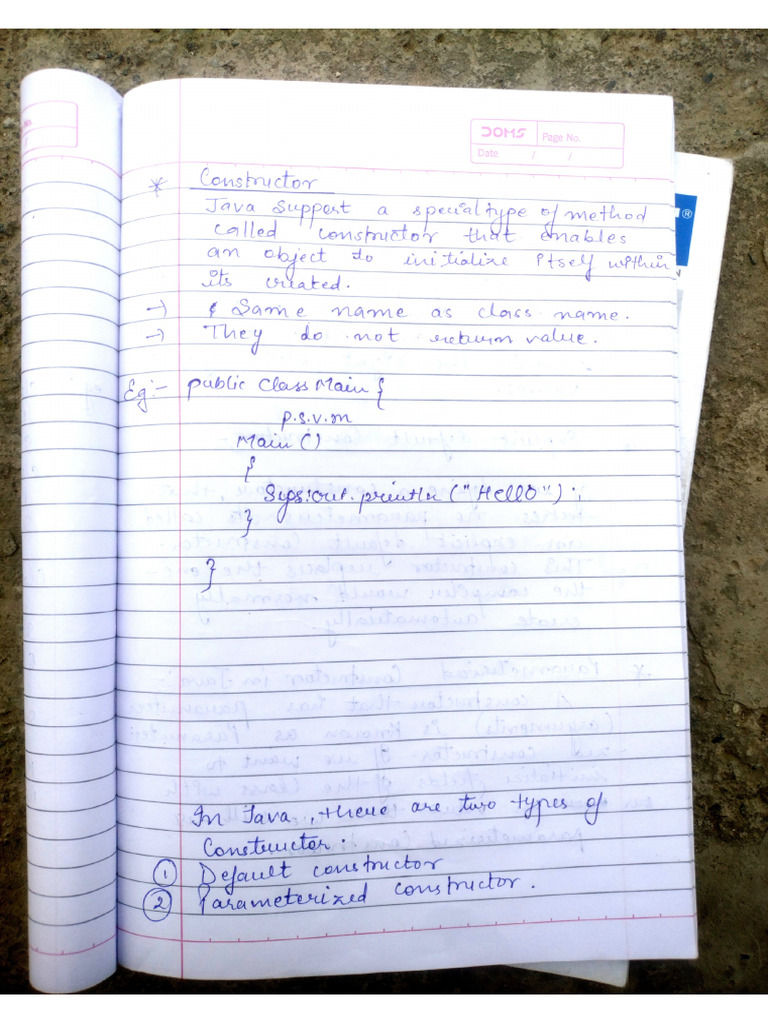 DOMS
Page No.
Date / /
* Constructor
Java Support a special type of method
called constructor that enables
an object to initialize itself within
its created.
→ Same name as class name.
→ They do not return value.
Eg:- public Class Main {
p.s.v.m
Main ()
{
Sys.out.println ("Hello") ;
}
}
In Java, there are two types of
Constructor:
① Default constructor
② Parameterized constructor.